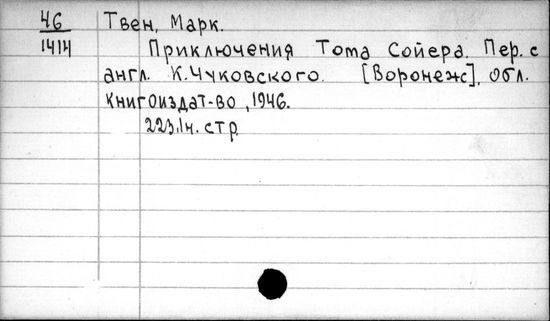 46
1414
Твен, Марк.
Приключения Тома Сойера. Пер. с
англ. К. Чуковского. [Воронеж], обл.
книгоиздат-во, 1946.
223.1ч. стр.